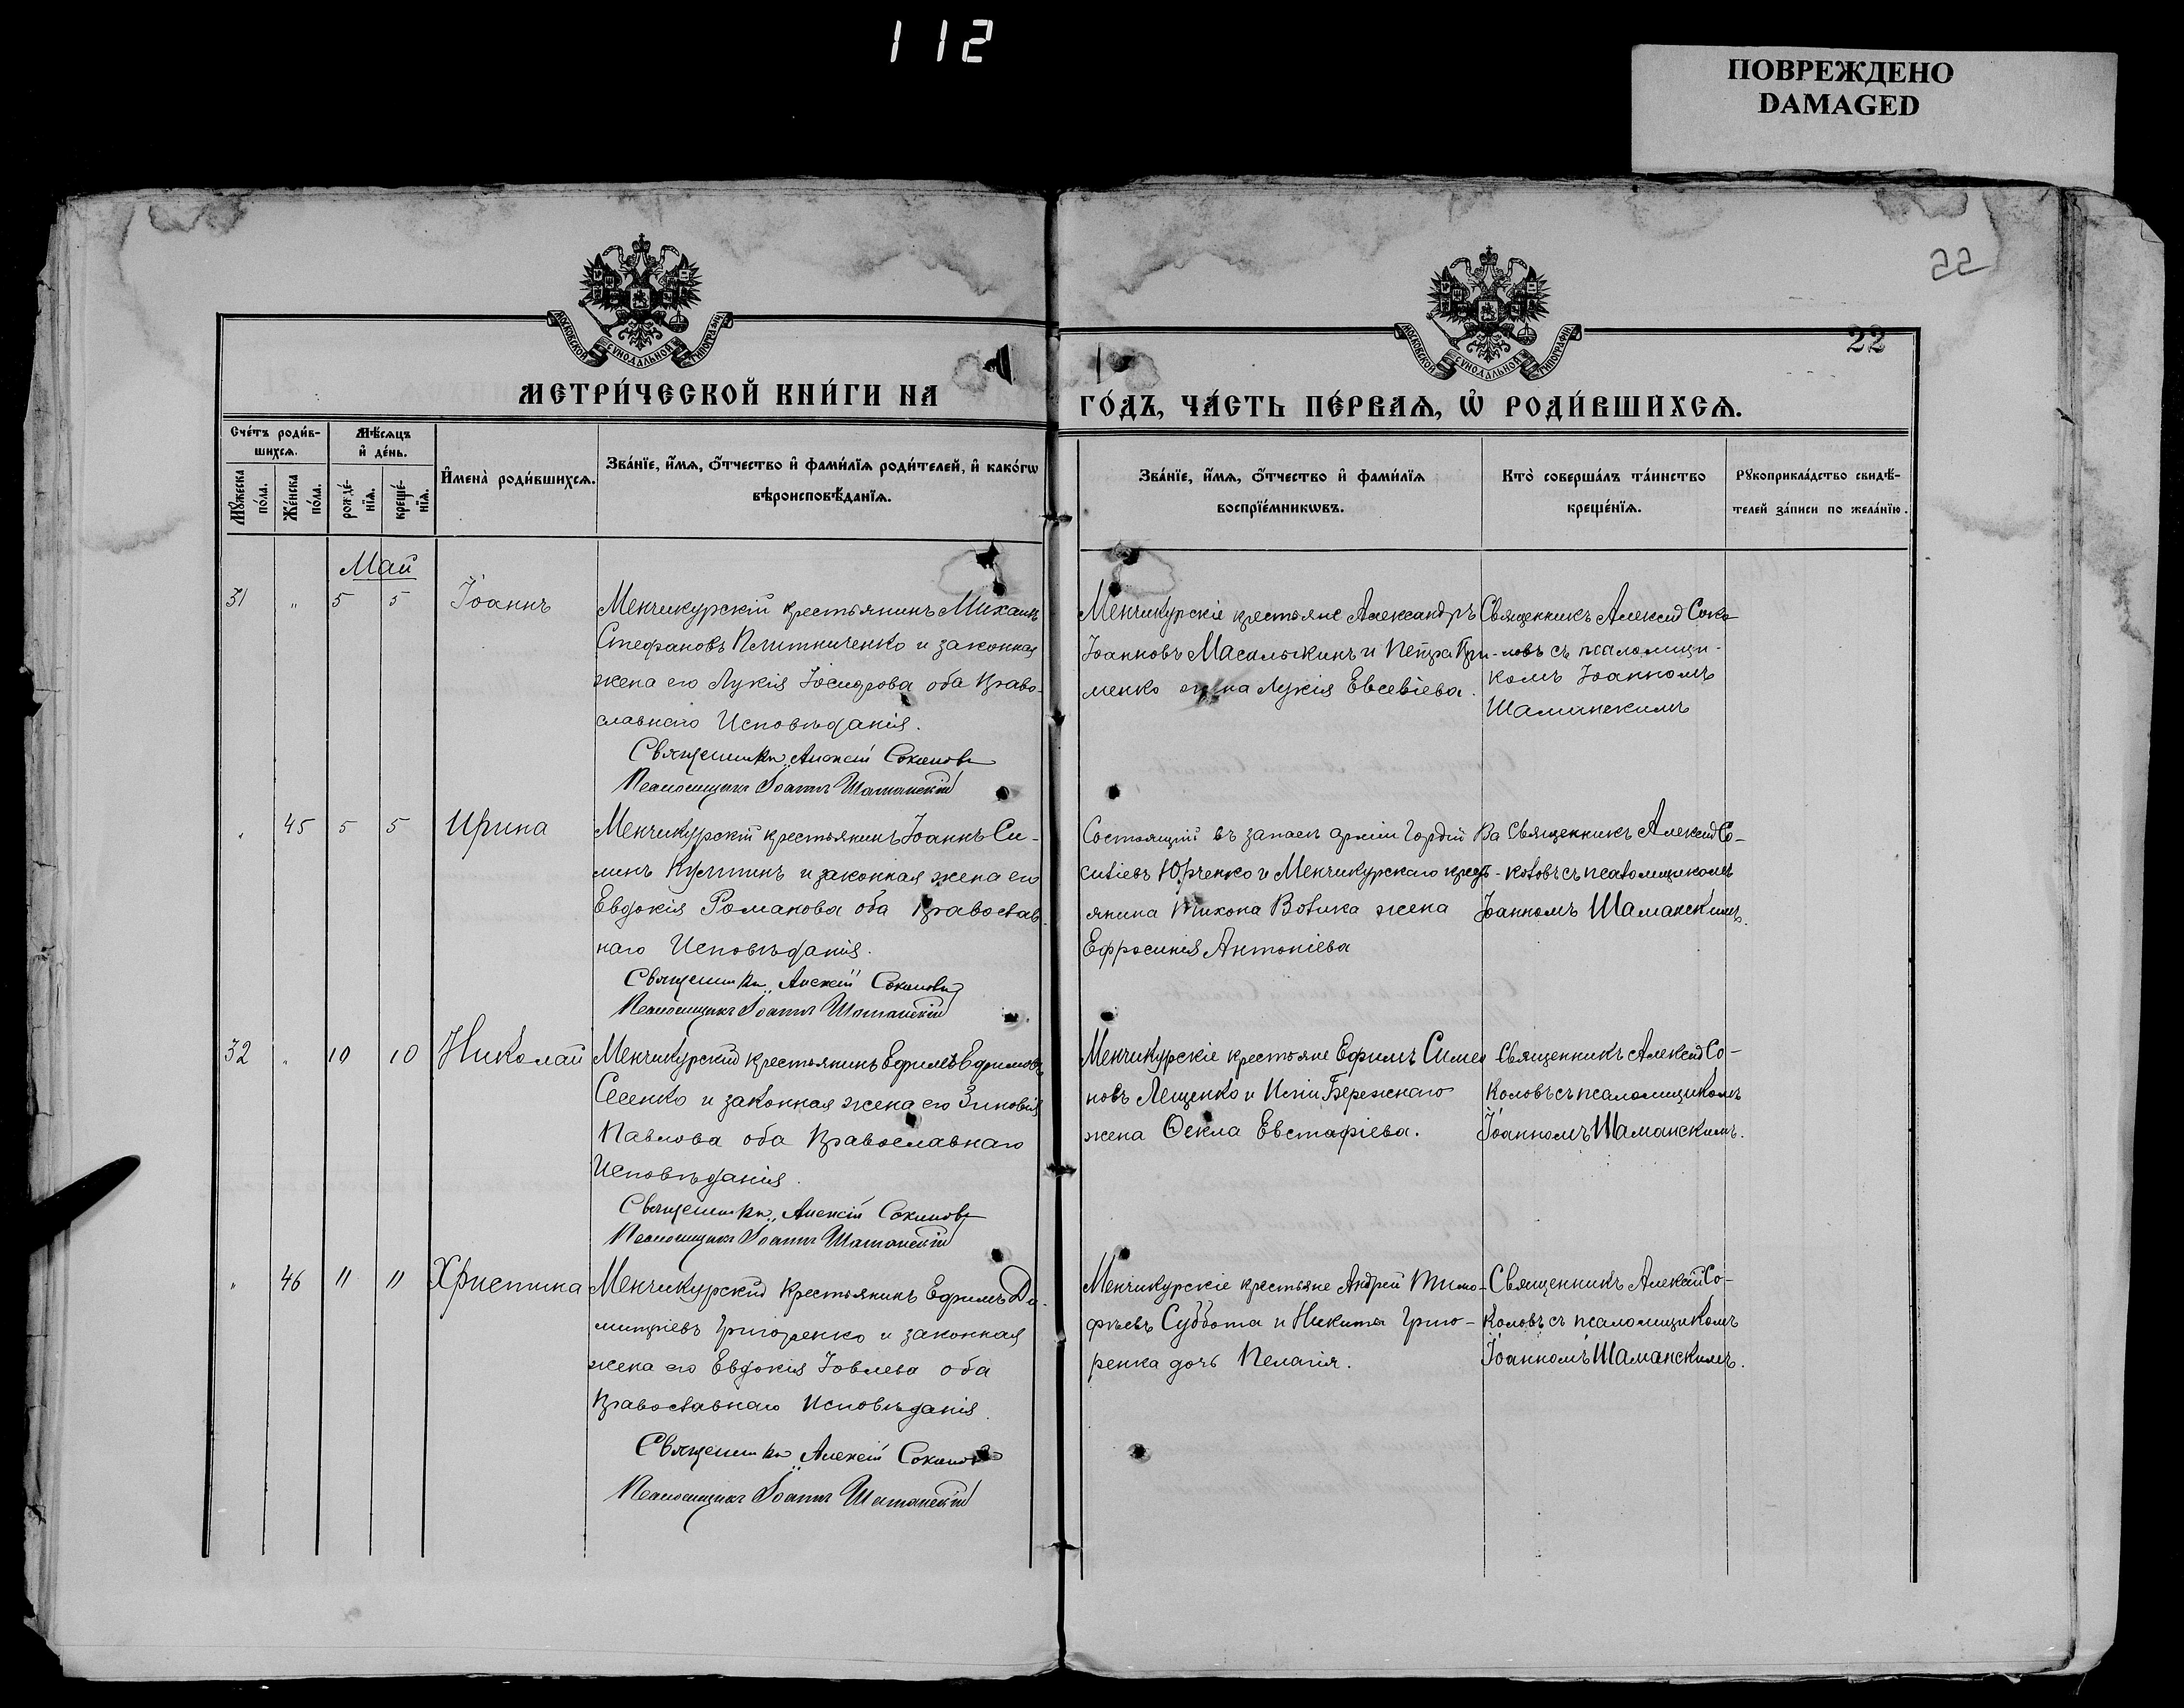 112
ПОВРЕЖДЕНО
DAMAGED
22
МОСКОВСКОЙ СУНОДАЛЬНОЙ ТИПОГРАФІИ
МОСКОВСКОЙ СУНОДАЛЬНОЙ ТИПОГРАФІИ
22
МЕТРИ́ЧЕСКОЙ КНИ́ГИ НА
ГО́ДЪ, ЧА́СТЬ ПЕ́РВАѦ, Ѡ҆ РОДИ́ВШИХСѦ.
Сче́тъ роди́в-
шихсѧ.
Мꙋ́жеска по́ла.
Же́нска по́ла.
Мѣ́сѧцъ
и҆ де́нь.
рожде́-
нїѧ.
креще́-
нїѧ.
И҆мена̀ роди́вшихсѧ.
Зва́нїе, и҆́мѧ, ѻ҆́тчество и҆ фами́лїѧ роди́телей, и҆ како́гѡ
вѣроисповѣ́данїѧ.
Зва́нїе, и҆́мѧ, ѻ҆́тчество и҆ фами́лїѧ
воспрїе́мникѡвъ.
Кто̀ соверша́лъ та́инство
креще́нїѧ.
Рꙋкоприкла́дство свидѣ́-
телей за́писи по жела́нїю.
Май
31 " 5 5 Іоаннъ
Менчикурскій крестьянинъ Михаилъ
Стефановъ Плитниченко и законная
жена его Лукія Іосифова оба Право-
славнаго Исповѣданія.
Священникъ Алексій Соколовъ
Псаломщикъ Іоаннъ Шаманскій
Менчикурскіе крестьяне Александръ
Іоанновъ Масалыкинъ и Петра
менко Лукія Евсевіева.
Священникъ Алексій Соко-
ловъ съ псаломщи-
комъ Іоанномъ
Шаманскимъ
" 45 5 5 Ирина
Менчикурскій крестьянинъ Іоаннъ Си-
минъ и законная жена его
Евдокія Романова оба Православ-
наго Исповѣданія.
Священникъ Алексій Соколовъ
Псаломщикъ Іоаннъ Шаманскій
Состоящій въ запасѣ арміи Гордій Ва
силіевъ Юрченко и Менчикурскаго крест-
янина Тихона Вовика жена
Ефросинія Антоніева
Священникъ Алексій Со-
коловъ съ псаломщикомъ
Іоанномъ Шаманскимъ.
32 " 10 10 Николай
Менчикурскій крестьянинъ Ефимъ Ефимовъ
Сесенко и законная жена его Зиновія
Павлова оба Православнаго
Исповѣданія.
Священникъ Алексій Соколовъ
Псаломщикъ Іоаннъ Шаманскій
Менчикурскіе крестьяне Ефимъ Симео
новъ Лещенко и Бережнаго
жена Ѳекла Евстафіева.
Священникъ Алексій Со-
коловъ съ псаломщикомъ
Іоанномъ Шаманскимъ.
" 46 11 11 Христина
Менчикурскій крестьянинъ Ефимъ Ди-
митріевъ Григоренко и законная
жена его Евдокія Іовлева оба
Православнаго Исповѣданія.
Священникъ Алексій Соколовъ
Псаломщикъ Іоаннъ Шаманскій
Менчикурскіе крестьяне Андрей Тимо-
фѣевъ Суббота и Никиты Григо-
ренка дочь Пелагія.
Священникъ Алексій Со-
коловъ съ псаломщикомъ
Іоанномъ Шаманскимъ.